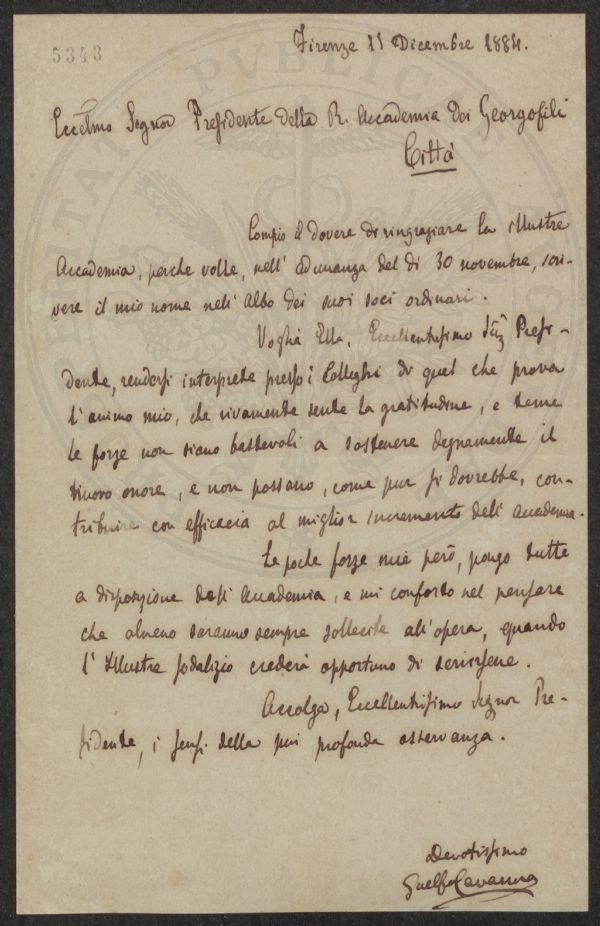 5343
Firenze 11 Dicembre 1884.
Eccelmo Signor Presidente della R. Accademia dei Georgofili
Città
Compio il dovere di ringraziare la illustre
Accademia, perche volle, nell' adunanza del dì 30 novembre, scri-
vere il mio nome nell' Albo dei suoi soci ordinari.
Voglia Ella, Eccellentissimo Sig. Presi-
dente, rendersi interprete presso i Colleghi di quel che prova
l'animo mio, che vivamente sente la gratitudine, e teme
le forze non siano bastevoli a sostenere degnamente il
nuovo onore, e non possano, come pur si dovrebbe, con-
tribuire con efficacia al miglior incremento dell' Accademia.
Le poche forze mie però, pongo tutte
a disposizione dell' Accademia, e mi conforto nel pensare
che almeno saranno sempre sollecite all'opera, quando
l' Illustre sodalizio crederà opportuno di servirsene.
Accolga, Eccellentissimo Signor Pre-
sidente, i sensi della più profonda osservanza.
Devotissimo
Guelfo Cavanna